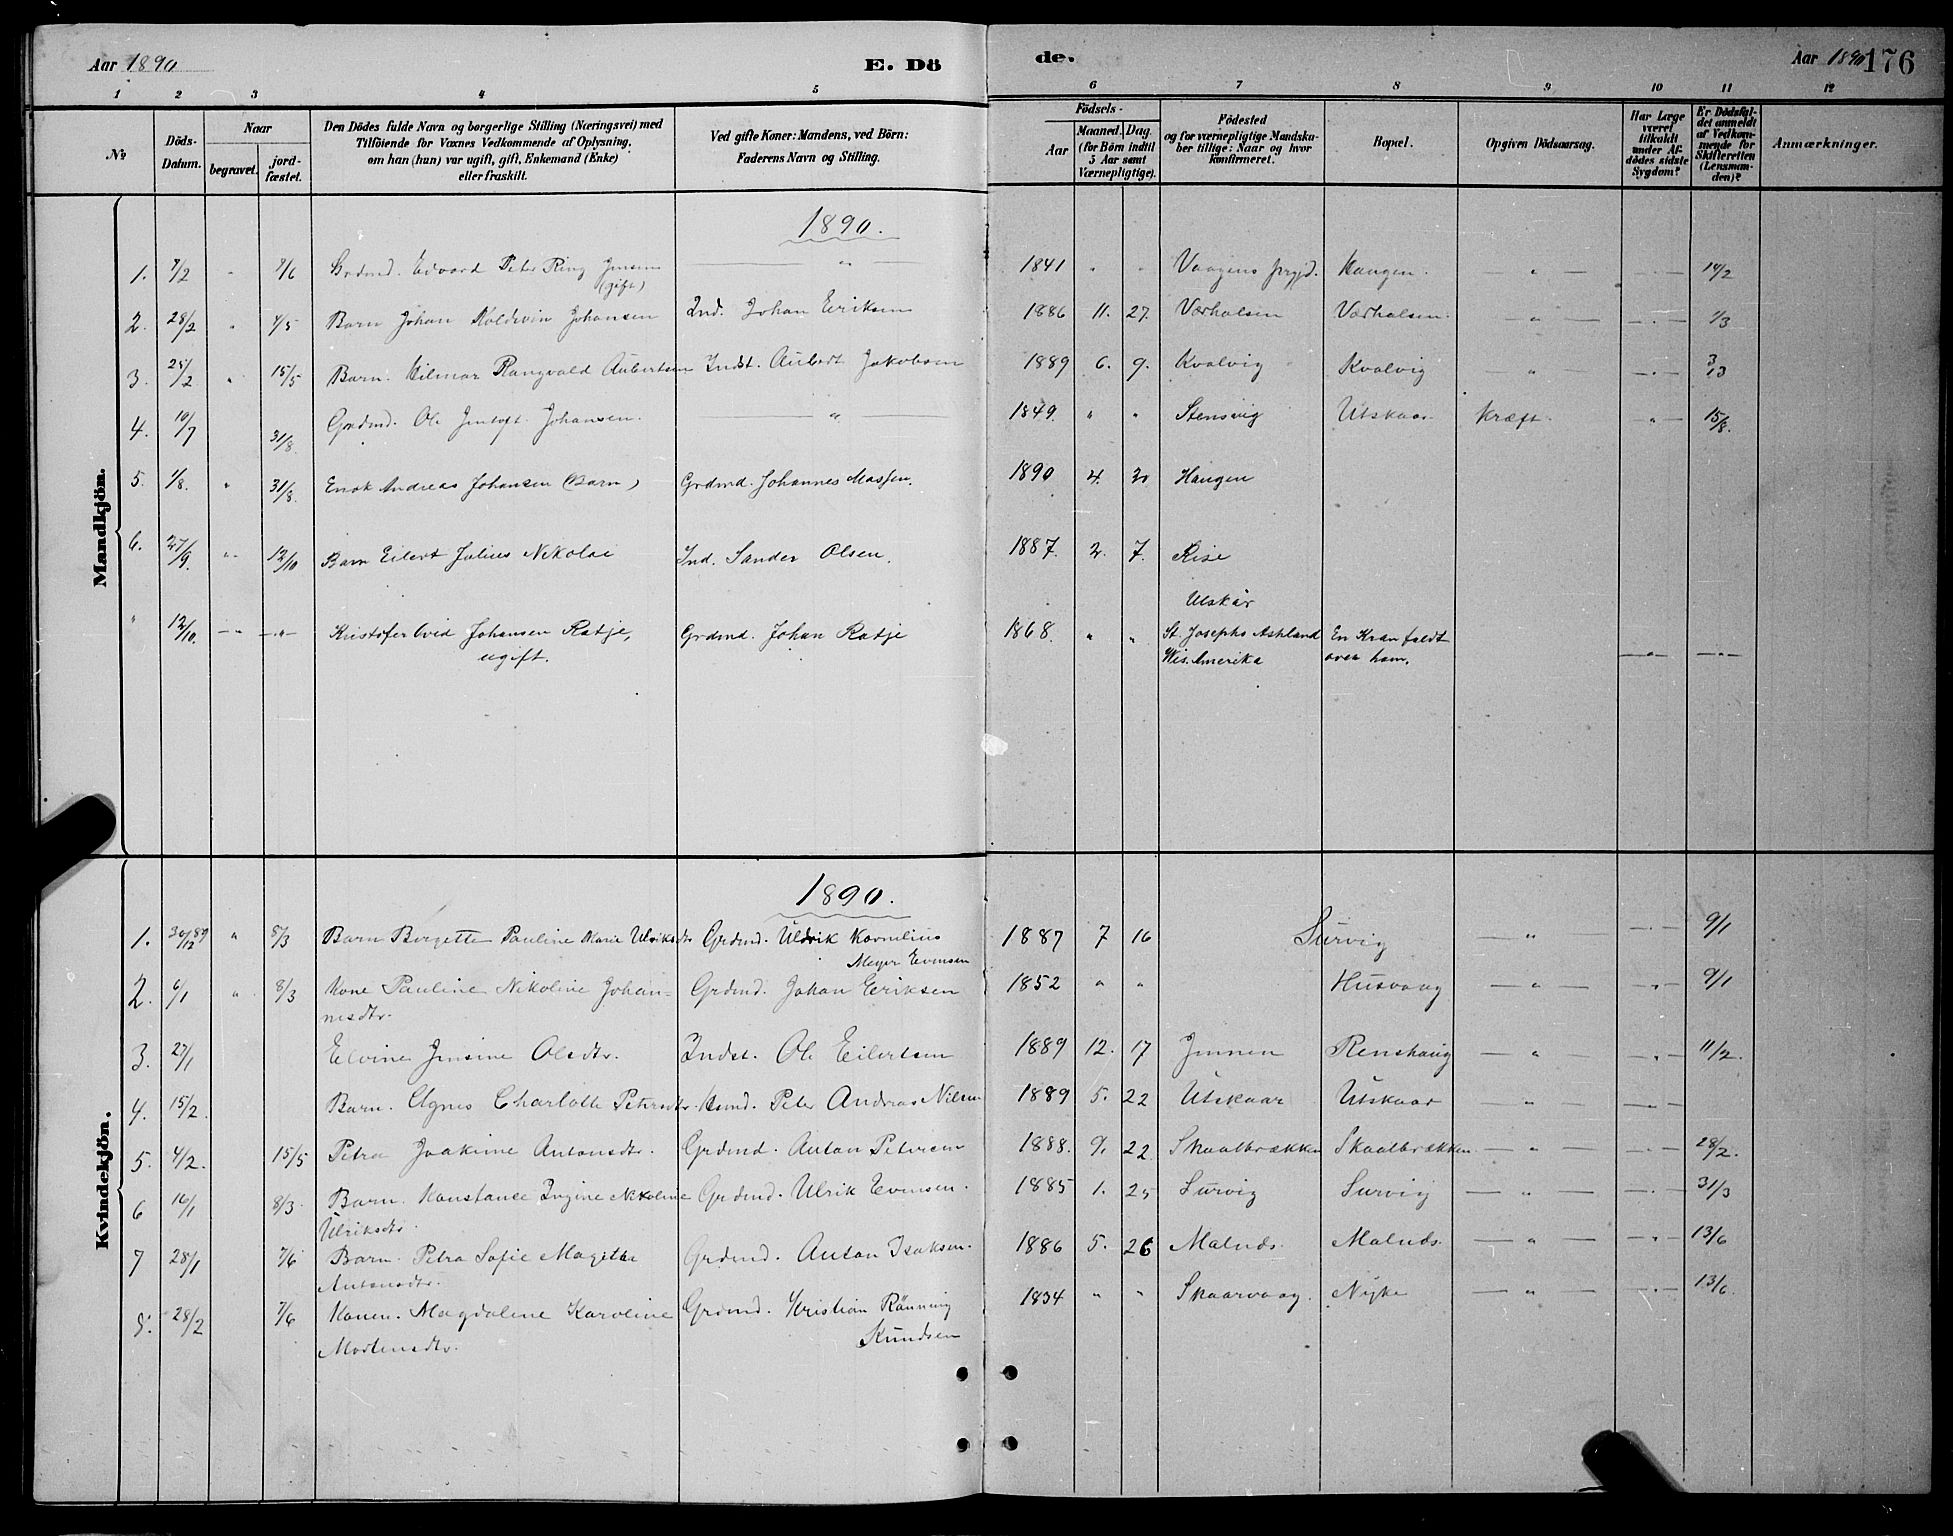 Aar 1890 E. Dö de. Aar 1890 176
1 2 3 4 5 6 7 8 9 10 11 12
No
Döds-Datum.
Naar
begravet.
jord-fæstet.
Den Dödes fulde Navn og borgerlige Stilling (Næringsvei) med
Tilföiende for Voxnes Vedkommende af Oplysning,
om han (hun) var ugift, gift, Enkemand (Enke)
eller fraskilt.
Ved gifte Koner: Mandens, ved Börn:
Faderens Navn og Stilling.
Födsels-
Aar
Maaned. Dag.
(for Börn indtil
5 Aar samt
Værnepligtige).
Födested
og for værnepligtige Mandska-
ber tillige: Naar og hvor
Konfirmeret.
Bopæl.
Opgiven Dödsaarsag.
Har Læge
været
tilkaldt
under Af-
dödes sidste
Sygdom?
Er Dödsfal-
det anmeldt
af Vedkom-
mende for
Skifteretten
(Lensman-
den)?
Anmærkninger.
Mandkjön.
1890.
1. 7/2 " 7/6 Grdmd. Edvard Peter Ring Jensen — " — 1841 " " Vaagens prgjd. Haugen. — " — — " — 14/2
(gift)
2. 28/2 " 4/5 Barn Johan Koldevin Johansen Ind. Johan Eriksen 1886 11. 27. Værhalsen Værhalsen. — " — — " — 1/3
3. 25/2 " 15/5 Barn. Hilmar Rangvald Aubertsen Indst. Aubert Jakobsen 1889 6. 9. Kvalvig Kvalvig — " — — " — 3/13
4. 19/7 31/8 Grdmd. Ole Jentoft Johansen. — " — 1849. " " Stensvig Utskaar Kræft. — " — 15/8.
5. 1/8. " 31/8. Enok Andreas Johansen (Barn) Grdmd. Johannes Massen. 1890 4. 30 Haugen
6. 27/9. " 12/10 Barn Eilert Julius Nikolai Ind. Sander Olsen. 1887. 2. 7. Rise
Utskår
" 12/10. — " — — " — Kristofer Ovid Johansen Ratje, Grdmd. Johan Ratje 1868. " " St. Josephs Ashland En Kran faldt
ugift. Wis. Amerika over ham. — " — — " —
Kvindekjön.
1890.
1. 30/12 89 " 8/3 Barn Birgette Pauline Marie Ulriksdtr Grdmd. Uldrik Kornelius 1887 7 16 Survig — " — — " — 9/1
Meyer Evensen
2. 6/1 " 8/3 Kone Pauline Nikoline Johan- Grdmd. Johan Eriksen 1852 " " Husvaag — " — — " — 9/1
nesdtr.
3. 27/1 Elvine Jensine Olsdtr. Indst. Ole Eilertsen 1889 12. 17 Jennen Renshaug — " — — " — 11/2.
4. 15/2. Barn. Agnes Charlotte Petersdtr. Hsmd. Peter Andreas Nilsen 1889 5. 22 Utskaar Utskaar — " — — " —
5. 4/2. 15/5 Petra Joakime Antonsdtr. Grdmd. Anton Petersen 1888. 9. 22 Skaalbrækken Skaalbrækken — " — — " — 28/2.
6 16/1 8/3 Barn. Konstanse Ingine Nikoline Grdmd. Ulrik Evensen. 1885 1. 25 Survig Survig — " — — " — 31/3
Ulriksdtr.
7 28/1 7/6 Barn. Petra Sofie Magitha Grdmd. Anton Isaksen. 1886 5. 26 Malnds. Malnds. — " — — " — 13/6
Antonsdtr.
8. 28/2 7/6 Konen. Magdalene Karoline Grdmd. Kristian Rönning 1834 " " Skaarvaag. Nyke — " — — " — 13/6.
Mortensdtr. Knudsen